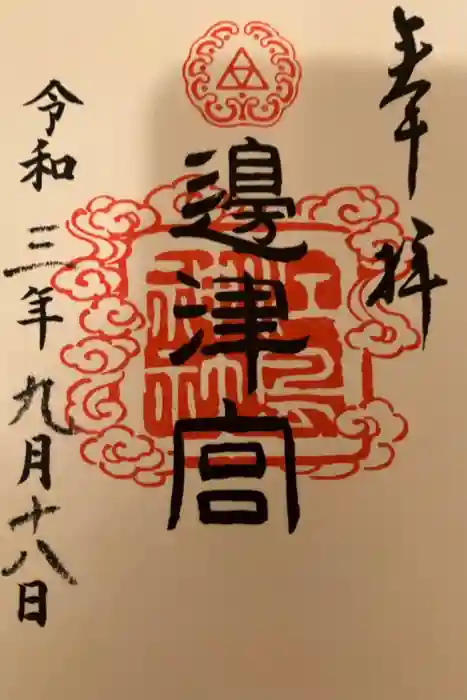 奉拝
邊津宮
令和三年九月十八日